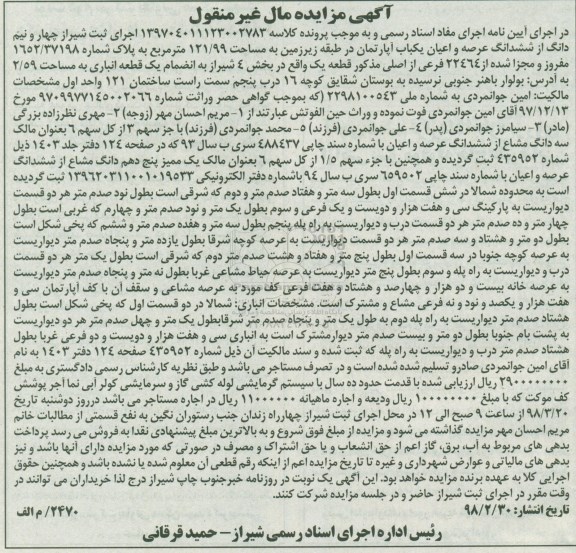 آگهی مزایده مال غیرمنقول
در اجرای آیین نامه اجرای مفاد اسناد رسمی و به موجب پرونده کلاسه ۱۳۹۷۰۴۰۱۱۱۲۳۰۰۲۷۸۳ اجرای ثبت شیراز چهار و نیم
دانگ از ششدانگ عرصه و اعیان یکباب آپارتمان در طبقه زیرزمین به مساحت ۱۲۱/۹۹ مترمربع به پلاک شماره ۱۶۵۲/۳۷۱۹۸
مفروز و مجزا شده از ۲۲۴۶۴ فرعی از اصلی مذکور قطعه یک واقع در بخش ۴ شیراز به انضمام یک قطعه انباری به مساحت ۲/۵۹
به آدرس: بولوار باهنر جنوبی نرسیده به بوستان شقایق کوچه ۱۶ درب پنجم سمت راست ساختمان ۱۲۱ واحد اول مشخصات
مالکیت: امین جوانمردی به شماره ملی ۲۲۹۸۱۰۰۵۴۳ (که بموجب گواهی حصر وراثت شماره ۹۷۰۹۹۷۷۱۴۵۰۰۲۰۶۶ مورخ
۹۷/۱۲/۱۳ آقای امین جوانمردی فوت نموده و وراث حین الفوتش عبارتند از ۱- مریم احسان مهر (زوجه) ۲- مهری نظرزاده بزرگی
(مادر) ۳- سیامرز جوانمردی (پدر) ۴- علی جوانمردی (فرزند) ۵- محمد جوانمردی (فرزند) با جز سهم ۳ از کل سهم ۶ بعنوان مالک
سه دانگ مشاع از ششدانگ عرصه و اعیان با شماره سند چاپی ۴۸۸۴۳۷ سری ب سال ۹۳ که در صفحه ۱۲۴ دفتر جلد ۱۴۰۳ ذیل
شماره ۴۳۵۹۵۲ ثبت گردیده و همچنین با جزء سهم ۱/۵ از کل سهم ۶ بعنوان مالک یک ممیز پنج دهم دانگ مشاع از ششدانگ
عرصه و اعیان با شماره سند چاپی ۶۵۹۵۰۲ سری ب سال ۹۴ باشماره دفتر الکترونیکی ۱۳۹۶۲۰۳۱۱۰۰۱۰۱۹۵۳۳ ثبت گردیده
است به محدوده شمالا در شش قسمت اول بطول سه متر و هفتاد صدم متر و دوم که شرقی است بطول نود صدم متر هر دو قسمت
دیواریست به پارکینگ سی و هفت هزار و دویست و یک فرعی و سوم بطول یک متر و نود صدم متر و چهارم که غربی است بطول
چهار متر و ده صدم متر هر دو قسمت درب و دیواریست به راه پله پنجم بطول سه متر و هفده صدم متر و ششم که پخی شکل است
بطول دو متر و هشتاد و سه صدم متر هر دو قسمت دیواریست به عرصه کوچه شرقا بطول یازده متر و پنجاه صدم متر دیواریست
به عرصه کوچه جنوبا در سه قسمت اول بطول پنج متر و هفتاد و هشت صدم متر دوم که شرقی است بطول یک متر هر دو قسمت
درب و دیواریست به راه پله و سوم بطول پنج متر دیواریست به عرصه حیاط مشاعی غربا بطول نه متر و پنجاه صدم متر دیواریست
به عرصه خانه بیست و دو هزار و چهارصد و هشتاد و هفت فرعی کف مورد به عرصه مشاعی و سقف آن با کف آپارتمان سی و
هفت هزار و یکصد و نود و نه فرعی مشاع و مشترک است. مشخصات انباری: شمالا در دو قسمت اول که پخی شکل است بطول
هشتاد صدم متر دیواریست به راه پله دوم به طول یک متر و پنجاه صدم متر شرقابطول یک متر و چهل صدم متر هر دو دیواریست
به پشت بام جنوبا بطول دو متر و بیست صدم متر دیوارمشترک است به انباری سی و هفت هزار و دویست و دو فرعی غربا بطول
هشتاد صدم متر درب و دیواریست به راه پله که ثبت شده و سند مالکیت آن ذیل شماره ۴۳۵۹۵۲ صفحه ۱۲۴ دفتر ۱۴۰۳ به نام
آقای امین جوانمردی صادرو تسلیم شده شده است و در تصرف مستاجر می باشد و طبق نظریه کارشناس رسمی دادگستری به مبلغ
۲۹۰۰۰۰۰۰۰۰ ریال ارزیابی شده با قدمت حدود ده سال با سیستم گرمایشی لوله کشی گاز و سرمایشی کولر آبی نما آجر پوشش
کف موکت که با مبلغ ۱۰۰۰۰۰۰۰۰ ریال ودیعه و اجاره ماهیانه ۱۱۰۰۰۰۰۰ ریال در اجاره مستاجر می باشد درروز دوشنبه تاریخ
۹۸/۳/۲۰ از ساعت ۹ صبح الی ۱۲ در محل اجرای ثبت شیراز چهارراه زندان جنب رستوران نگین به نفع قسمتی از مطالبات خانم
مریم احسان مهر مزایده گذاشته می شود و مزایده از مبلغ فوق شروع و به بالاترین مبلغ پیشنهادی نقدا به فروش می رسد پرداخت
بدهی های مربوط به آب، برق، گاز اعم از حق انشعاب و یا حق اشتراک و مصرف در صورتی که مورد مزایده دارای آنها باشد و نیز
بدهی های مالیاتی و عوارض شهرداری و غیره تا تاریخ مزایده اعم از اینکه رقم قطعی آن معلوم شده یا نشده باشد و همچنین حقوق
اجرایی کلا به عهده برنده مزایده خواهد بود. این آگهی یک نوبت در روزنامه خبرجنوب چاپ شیراز درج لذا خریداران می توانند در
وقت مقرر در اجرای ثبت شیراز حاضر و در جلسه مزایده شرکت کنند.
تاریخ انتشار: ۹۸/۲/۳۰
۲۴۷۰/م الف
رئیس اداره اجرای اسناد رسمی شیراز - حمید قرقانی